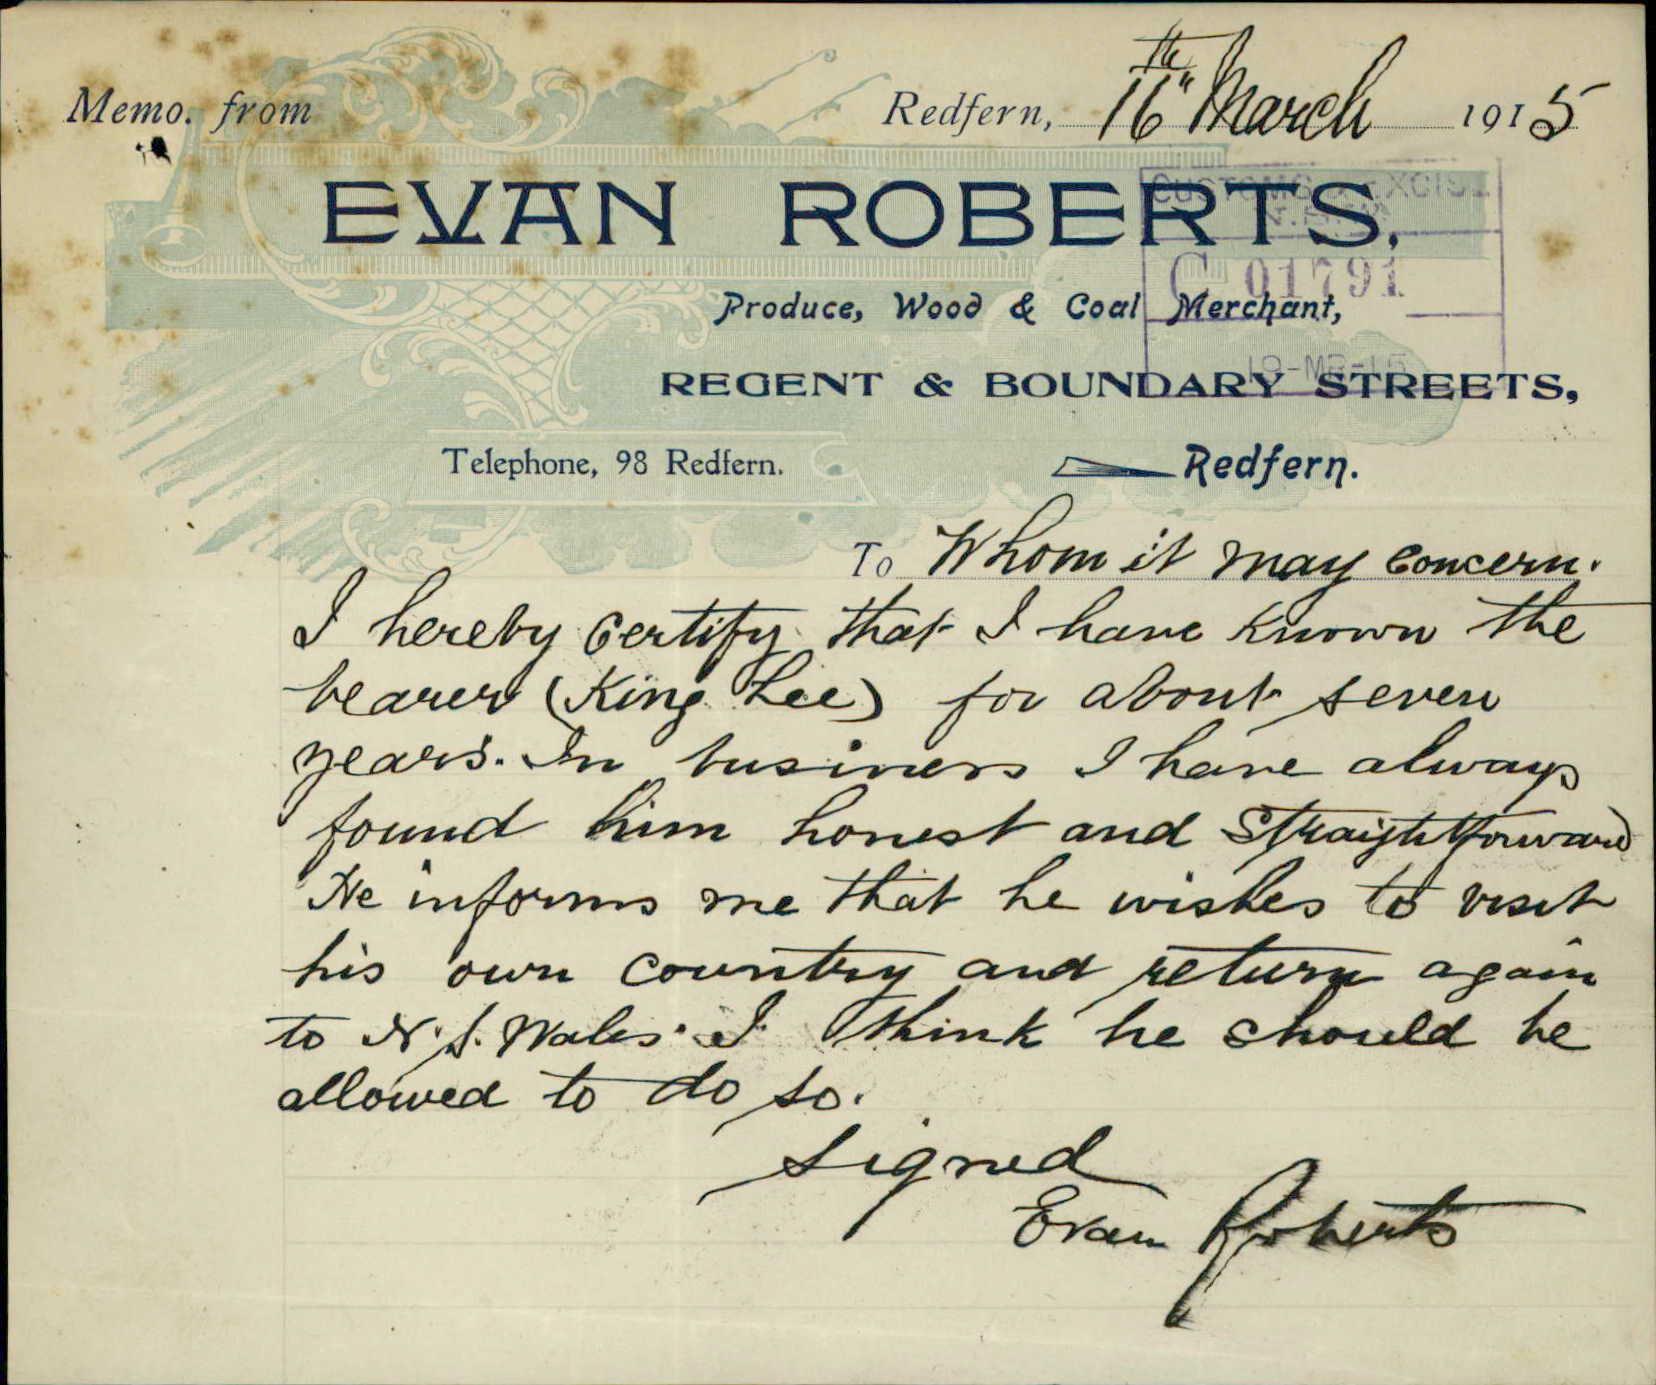 Memo. from
Redfern, 16th March 1915
EVAN ROBERTS,
CUSTOMS & EXCISE
N.S.W.
C 01791
Produce, Wood & Coal Merchant,
18-MR-15
REGENT & BOUNDARY STREETS,
Telephone, 98 Redfern.
Redfern.
To Whom it may Concern.
I hereby Certify that I have known the
bearer (King Lee) for about seven
years. In business I have always
found him honest and Straightforward
He informs me that he wishes to visit
his own Country and return again
to N.S. Wales. I think he should be
allowed to do so.
Signed
Evan Roberts